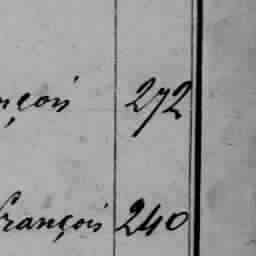 nçois 272
françois 240